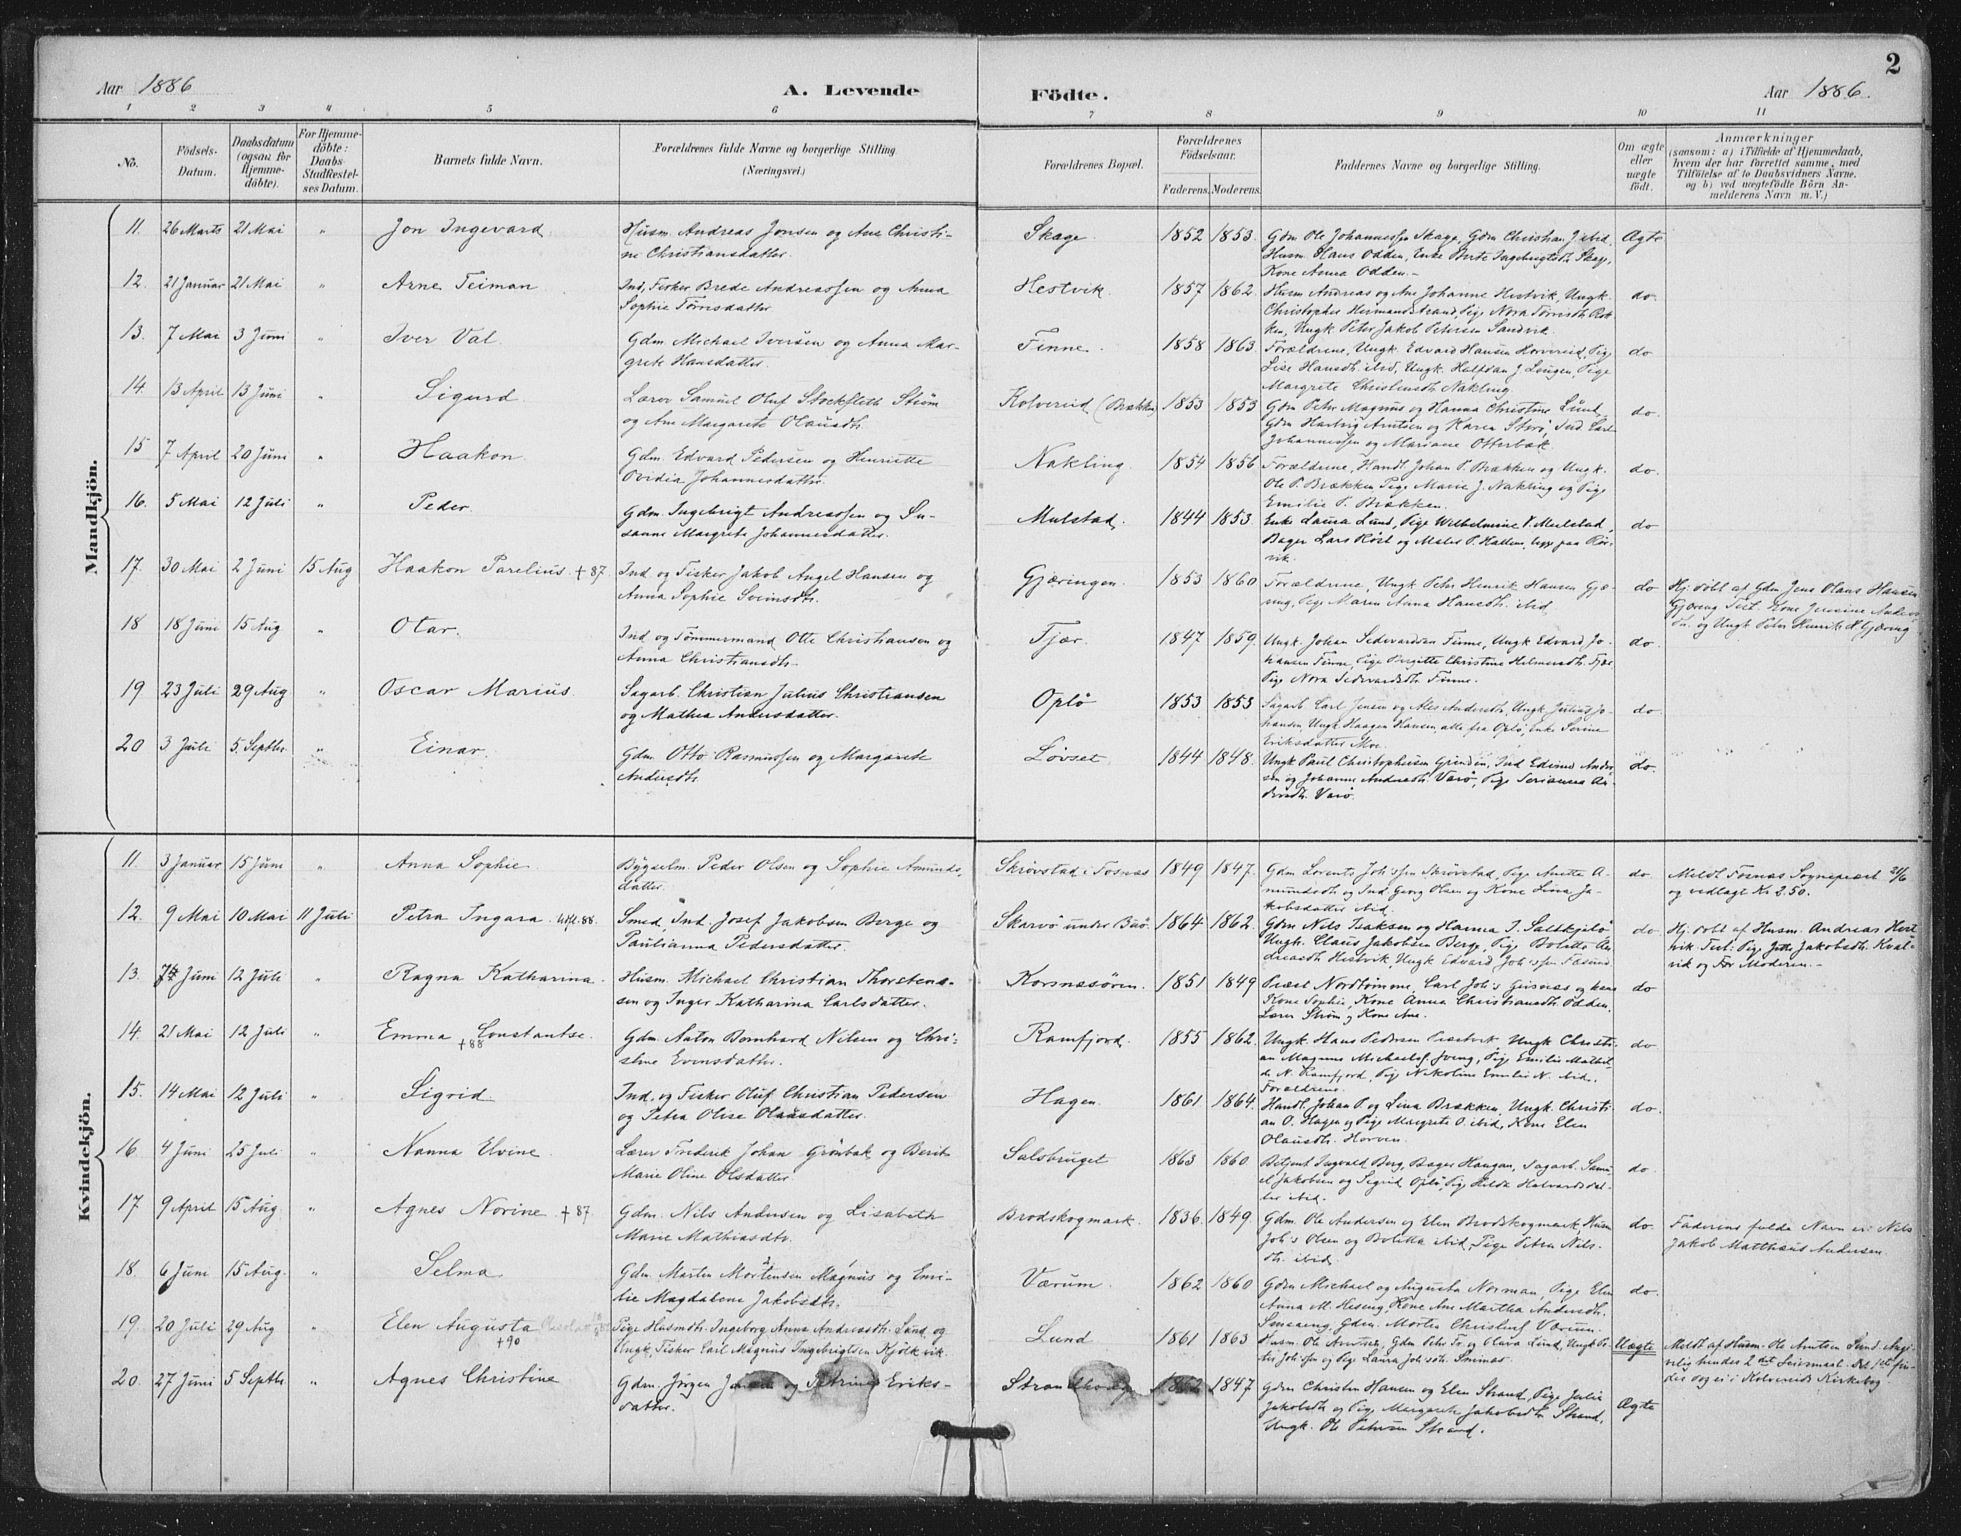 2
Aar 1886
A. Levende
Födte.
Aar 1886.
1 2 3 4 5 6 7 8 9 10 11
No.
Födsels-Datum.
Daabsdatum (ogsaa for Hjemme-döbte).
For Hjemme-döbte: Daabs-Stadfæstel-ses Datum.
Barnets fulde Navn.
Forældrenes fulde Navne og borgerlige Stilling
(Næringsvei.)
Forældrenes Bopæl.
Forældrenes Födselsaar.
Faderens. Moderens.
Faddernes Navne og borgerlige Stilling.
Om ægte eller uægte födt.
Anmærkninger
(saasom: a) i Tilfælde af Hjemmedaab,
hvem der har forrettet samme, med
Tilföielse af to Daabsvidners Navne,
og b) ved uægtefödte Börn An-
melderens Navn m. V.)
Mandkjön.
11. 26 Marts 21 Mai " Jon Ingevard. Husm. Andreas Jonsen og Ane Christi-
ne Christiansdatter.
Skage. 1852 1853. Gdm Ole Johannessen Skage, Gdm Christian J. ibid,
Husm. Hans Odden, Enke Berte Ingebrigtsdt. Skage,
Kone Anna Odden.-
Ægte
12. 21 Januar 21 Mai " Arne Teiman Ind, Fisker Brede Andreassen og Anna
Sophie Tørrisdatter.
Hestvik. 1857 1862. Husm Andreas og Ane Johanne Hestvik, Ungk.
Christopher Hermandstrand, Pige Nora Tørrisdt
Ungk Peter Jakob Petersen Sandvik.
do.
13. 7 Mai 3 Juni " Iver Val. Gdm Michael Iversen og Anna Mar-
grete Hansdatter.
Finne. 1858 1863. Forældrene, Ungk. Edvard Hansen Horvereid, Pige
Lise Hansdt. ibid, Ungk. Halfdan J. Lengen, Pige
Margrete Christensdt. Nakling.
do
14. 13 April 13 Juni " Sigurd. Lærer Samuel Oluf Stockfleth Strøm
og Ane Margarete Olausdt.
Kolvereid (Brækken) 1853 1853 Gdm Peter Magnus og Hanna Christine Lund,
Gdm Hartvig Arntsen og Karen Sterø, Ind. Carl
Johannessen og Mariane Otterbæk.
do.
15 7 April 20 Juni " Haakon. Gdm. Edvard Pedersen og Henriette
Ovidia Johannesdatter.
Nakling 1854 1856 Forældrene, Handl. Johan P. Brækken og Ungk.
Ole P. Brækken, Pige Marie J. Nakling og Pige
Emilie P. Brækken.
do.
16. 5 Mai 12 Juli " Peder. Gdm. Ingebrigt Andreassen og Su-
sanne Margrete Johannesdatter.
Mulstad. 1844 1853. Enke Laura Lund, Pige Wilhelmine P. Mulstad,
Bager Lars Røst og P. Hatten, begge paa Rør-
vik.
do
17. 30 Mai 2 Juni 15 Aug Haakon Parelius. † 87 Ind og Fisker Jakob Angel Hansen og
Anna Sophie Svinsdt.
Gjæringen. 1853 1860 Forældrene, Ungk Peter Henrik Hansen Gjæ-
ring, Pige Maren Anna Hansdt. ibid.
do
Hj. døbt af Gdm Jens Olaus Hansen
Gjæring Test. Kone
og Ungk Peter Henrik H. Gjæring
18 18 Juni 15 Aug " Otar. Ind og Tømmermand Otte Christiansen og
Anna Christiansdt.
Tjær. 1847 1859. Ungk. Johan Sedevardsen Finne, Ungk Edvard Jo-
hansen Finne, Pige Birgitte Christine Helmersdt. Tjær
Pige Nora Sedevardsdt. Finne.
do.
19 23 Juli 29 Aug " Oscar Marius. Sagarb. Christian Julius Christiansen
og Mathea Andersdatter.
Oplø 1853 1853 Sagarb Carl Jensen og Andersdt., Ungk Julius Jo-
hansen, Ungk Haagen Hansen, alle fra Oplø, Enke Serine
Eriksdatter Moe.
do.
20 3 Juli 5 Septbr. " Einar. Gdm. Otto Rasmussen og Margarete
Andersdt.
Løvset 1844 1848. Ungk Paul Christophersen Grinden, Ind Andre
sen og Johanne Andreasdt. Varø, Pige Serianna An-
dersdt. Varø.
do.
Kvindekjön.
11. 3 Januar 15 Juni " Anna Sophie. Bygselm. Peder Olsen og Sophie Amunds-
datter.
Skrøvstad i Fosnæs 1849 1847. Gdm Lorents Joh's'sen Skrøvstad, Pige Anette A-
mundsdt og Ind. Georg Olsen og Kone Lina Ja-
kobsdatter ibid.
do.
Meldt Fosnæs Sognepræst 21/6
og vedlagt Kr 2.50.
12. 9 Mai 10 Mai 11 Juli Petra Ingara. Smed, Ind. Josef Jakobsen Berge og
Paulianna Pedersdatter.
Skarvø under Buø. 1864 1862. Gdm Nils Isaksen og Hanna J. Saltkjelø
Ungk. Claus Jakobsen Berge, Pige Bolette An-
dreasdt Hestvik, Ungk Edvard Joh's'sen Fæsund.
do.
Hj. døbt af Husm. Andreas Hest-
vik Test: Pige Jakobsdt. Kval-
vik og Far Moderen.-
13. 7 Juni 12 Juli " Ragna Katharina. Husm. Michael Christian Thorstens-
sen og Inger Katharina Carlsdatter.
Korsnæsøren. 1851 1849 Præst Nordtømme, Carl Joh's Grisnæs og hans
Kone Sophie, Kone Anna Christiansdt Odden,
Lærer Strøm og Kone Ane.
do
14. 21 Mai 12 Juli " Emma Constantse. † 88 Gdm. Anton Bernhard Nilsen og Chri-
stine Evensdatter.
Ramfjord. 1855 1862. Ungk. Hans Pedersen Ungk Christi-
an Magnus Michaels. Pige Emilie Mathil-
de N. Ramfjord, Pige Nikoline Emilie N. ibid.
Forældrene.
do
15. 14 Mai 12 Juli " Sigrid. Ind. og Fisker Oluf Christian Pedersen
og Petra Olise Olausdatter.
Hagen. 1861 1864. Handl. Johan P. og Lina Brækken, Ungk. Christi-
an O. Hagen og Pige Margrete O. ibid, Kone Elen
Olausdt. Horven.
do.
16. 4 Juni 25 Juli " Nanna Elvine. Lærer Frederik Johan Grønbæk og Berit
Marie Oline Olsdatter.
Salsbruget 1863 1860. Betjent Ingvald Berg, Bager Haugan, Sagarb. Samu
el Jakobsen og Sigrid Oplø, Pige Hilda Halvardsdat-
ter ibid.
do.
17. 9 April 15 Aug. " Agnes Norine. † 87. Gdm. Nils Andersen og Lisabeth
Marie Mathiasdtr.
Brodskogmark. 1836. 1849. Gdm. Ole Andersen og Elen Brodskogmark, Husm
Joh's Olsen og Bolitta ibid, Pige Petra Nils-
dt. ibid.
do
Faderens fulde Navn er: Nils
Jakob Matthæus Andersen.
18. 6 Juni 15 Aug. " Selma. Gdm. Martin Mortensen Magnus og Emi-
lie Magdalene Jakobsdt.
Værum. 1862 1860 Gdm Michael og Augusta Norman, Pige Elen
Anna M. Heseng, Kone Ane Martha Andersdt.
Gdm. Morten Christensen Værum.
do.
19. 20 Juli 29 Aug " Elen Augusta † 90 Pige Husmdt. Ingeborg Anna Andreasdt. Lund og
Ungk, Fisker Carl Magnus Ingebrigtsen Kjølkvik.
Lund 1861 1863 Husm. Ole Arntsen, Gdm Peter Fr. og Olava Lund, Ungk Pe-
ter Joh'sen og Pige Laura Joh'sdt.
Uægte
Meldt af Husm. Ole Arntsen Lund. Angi-
velig hendes 2det Leiermaal. Det 1ste fin-
des dog ei i Kolvereids Kirkebog.
20. 27 Juni 5 Septbr. " Agnes Christine Gdm. Jørgen og Petrine Eriks-
datter.
1847 Gdm Christen Hansen og Elen Strand, Pige Julie
Jakobsdt og Pige Margarete Jakobsdt Strand,
Ungk. Ole Petersen Strand.
Ægte